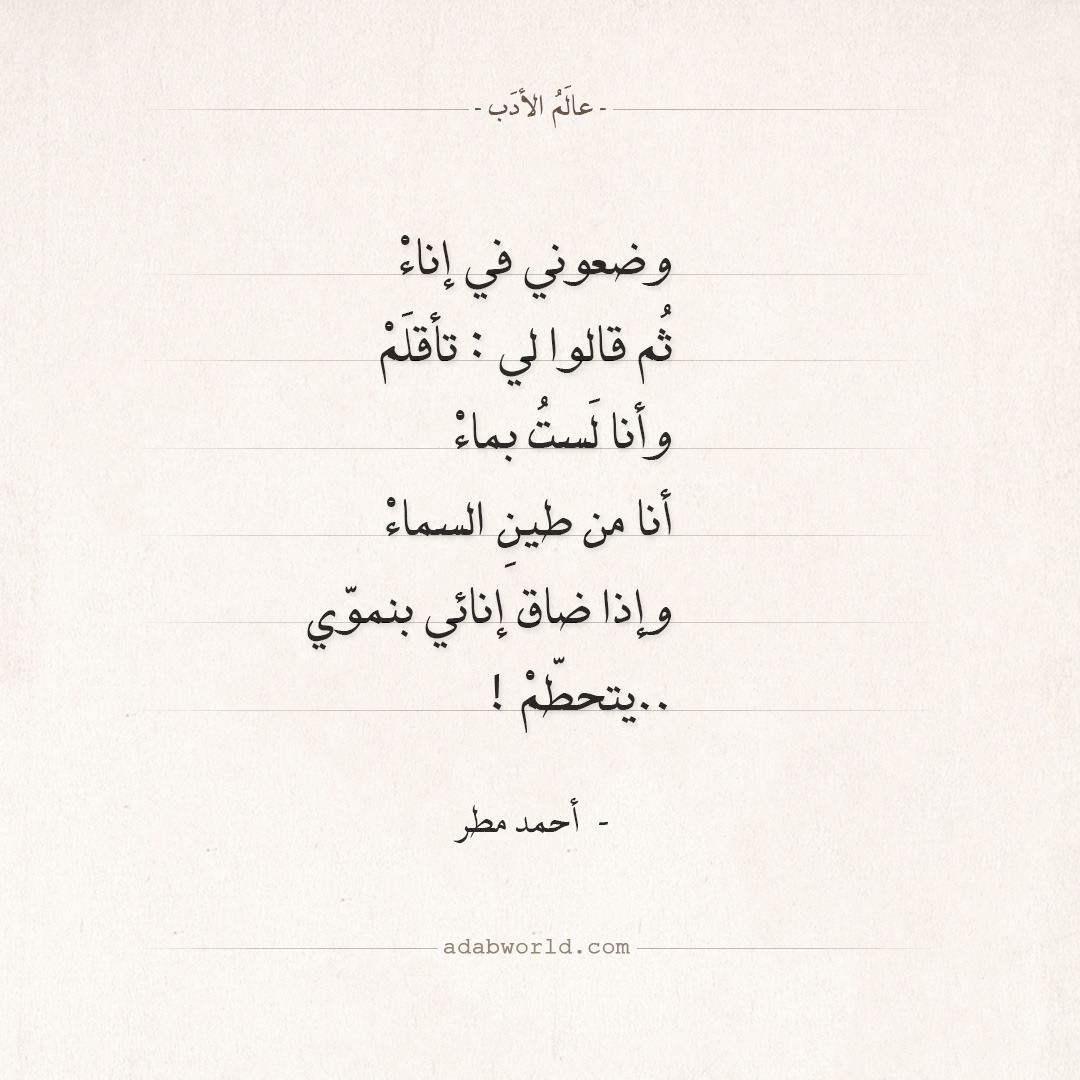 - عالَمُ الأدَب -
وضعوني في إناءْ
ثُم قالوا لي : تأقلَمْ
وأنا لَستُ بماءْ
أنا من طينِ السماءْ
وإذا ضاق إنائي بنموّي
..يتحطّمْ !
- أحمد مطر
adabworld.com